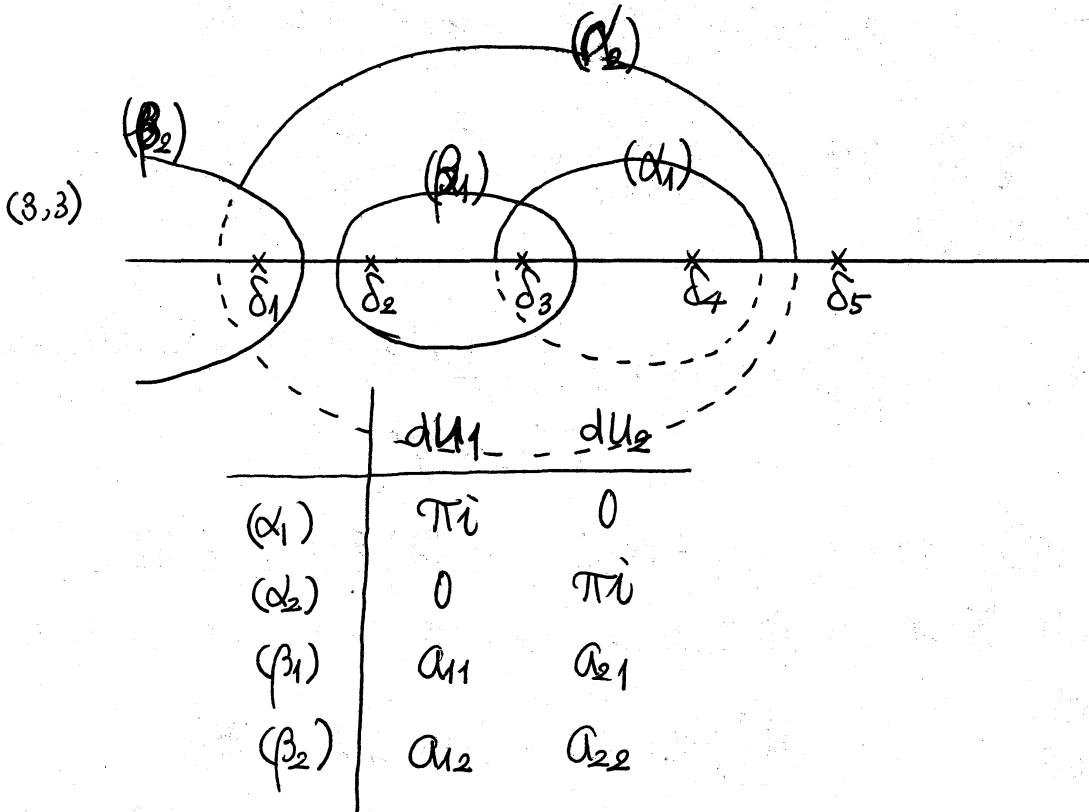 (α₂)
(β₂)
(β₁) (α₁)
(3,3)
δ̂₁ δ̂₂ δ̂₃ δ̂₄ δ̂₅
du₁ du₂
(α₁) πi 0
(α₂) 0 πi
(β₁) a₁₁ a₂₁
(β₂) a₁₂ a₂₂